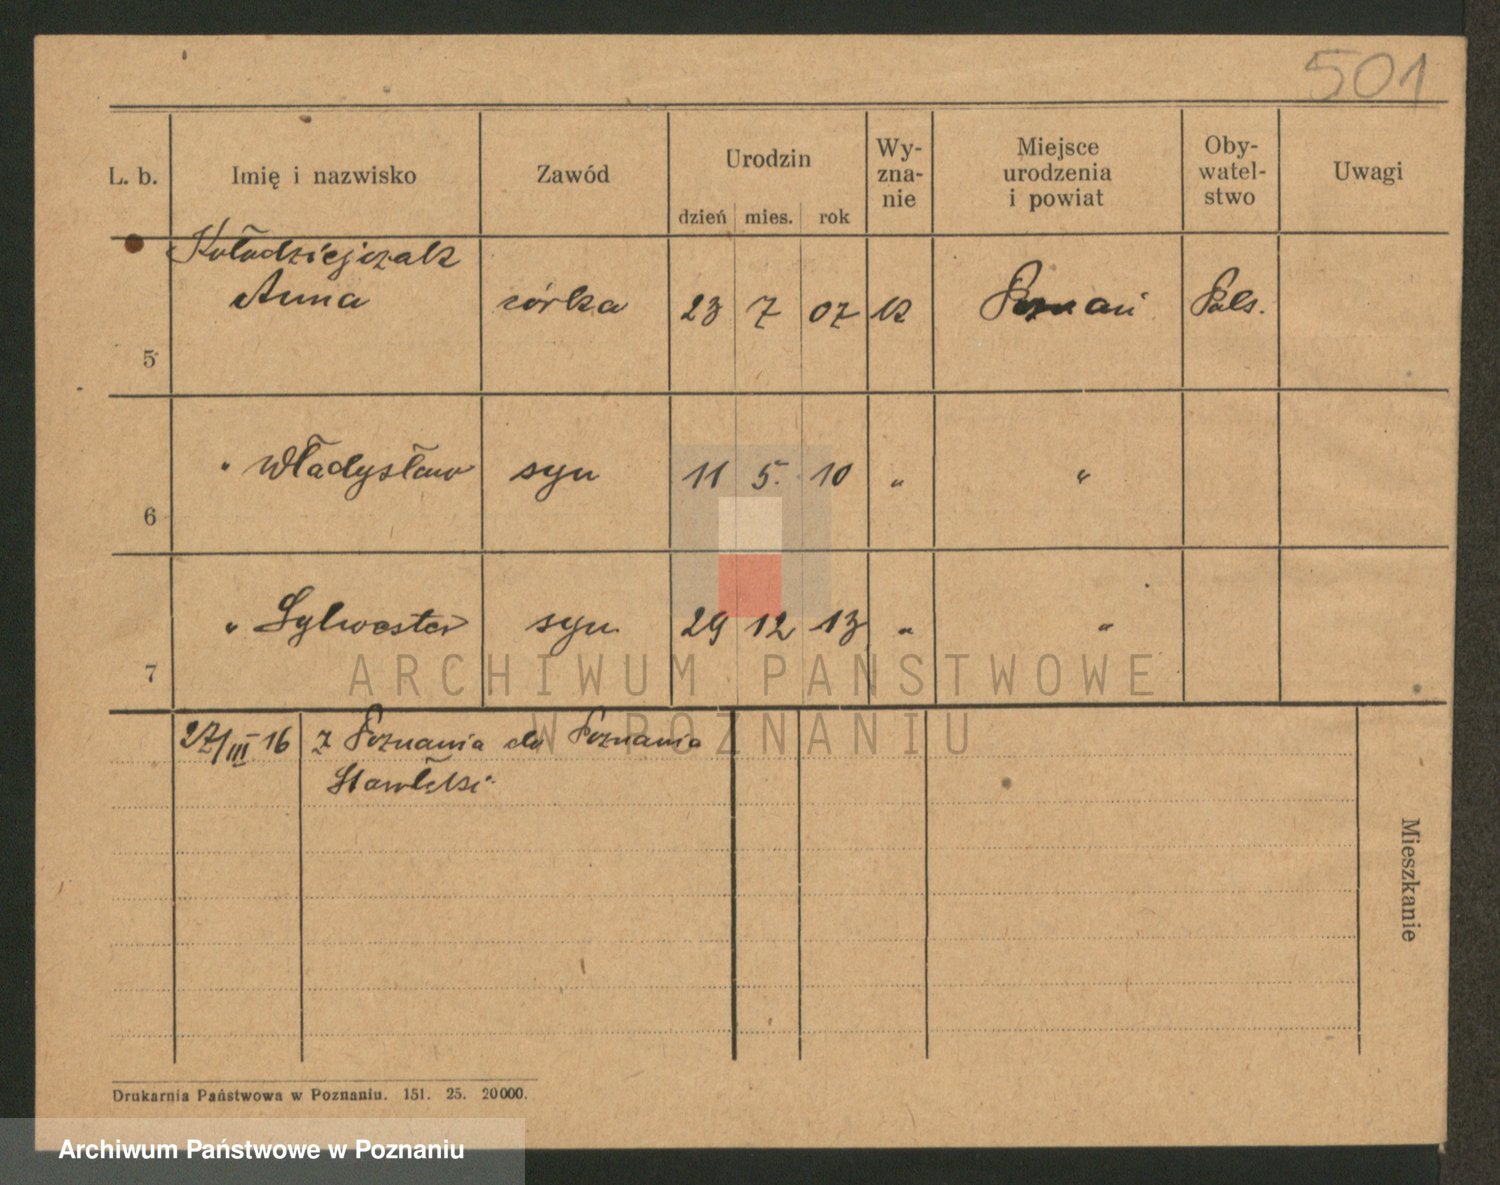 501
L. b.
Imię i nazwisko
Zawód
Urodzin
dzień mies. rok
Wy-
zna-
nie
Miejsce
urodzenia
i powiat
Oby-
watel-
stwo
Uwagi
Kołodziejczak
Anna córka 23 7 07 k Poznań Pols.
5
" Władysław syn 11 5. 10 " "
6
" Sylwester syn 29 12 13 " "
7
ARCHIWUM PAŃSTWOWE
W POZNANIU
27/III 16 z Poznania do Poznania
Mieszkanie
Drukarnia Państwowa w Poznaniu. 151. 25. 20000.
Archiwum Państwowe w Poznaniu